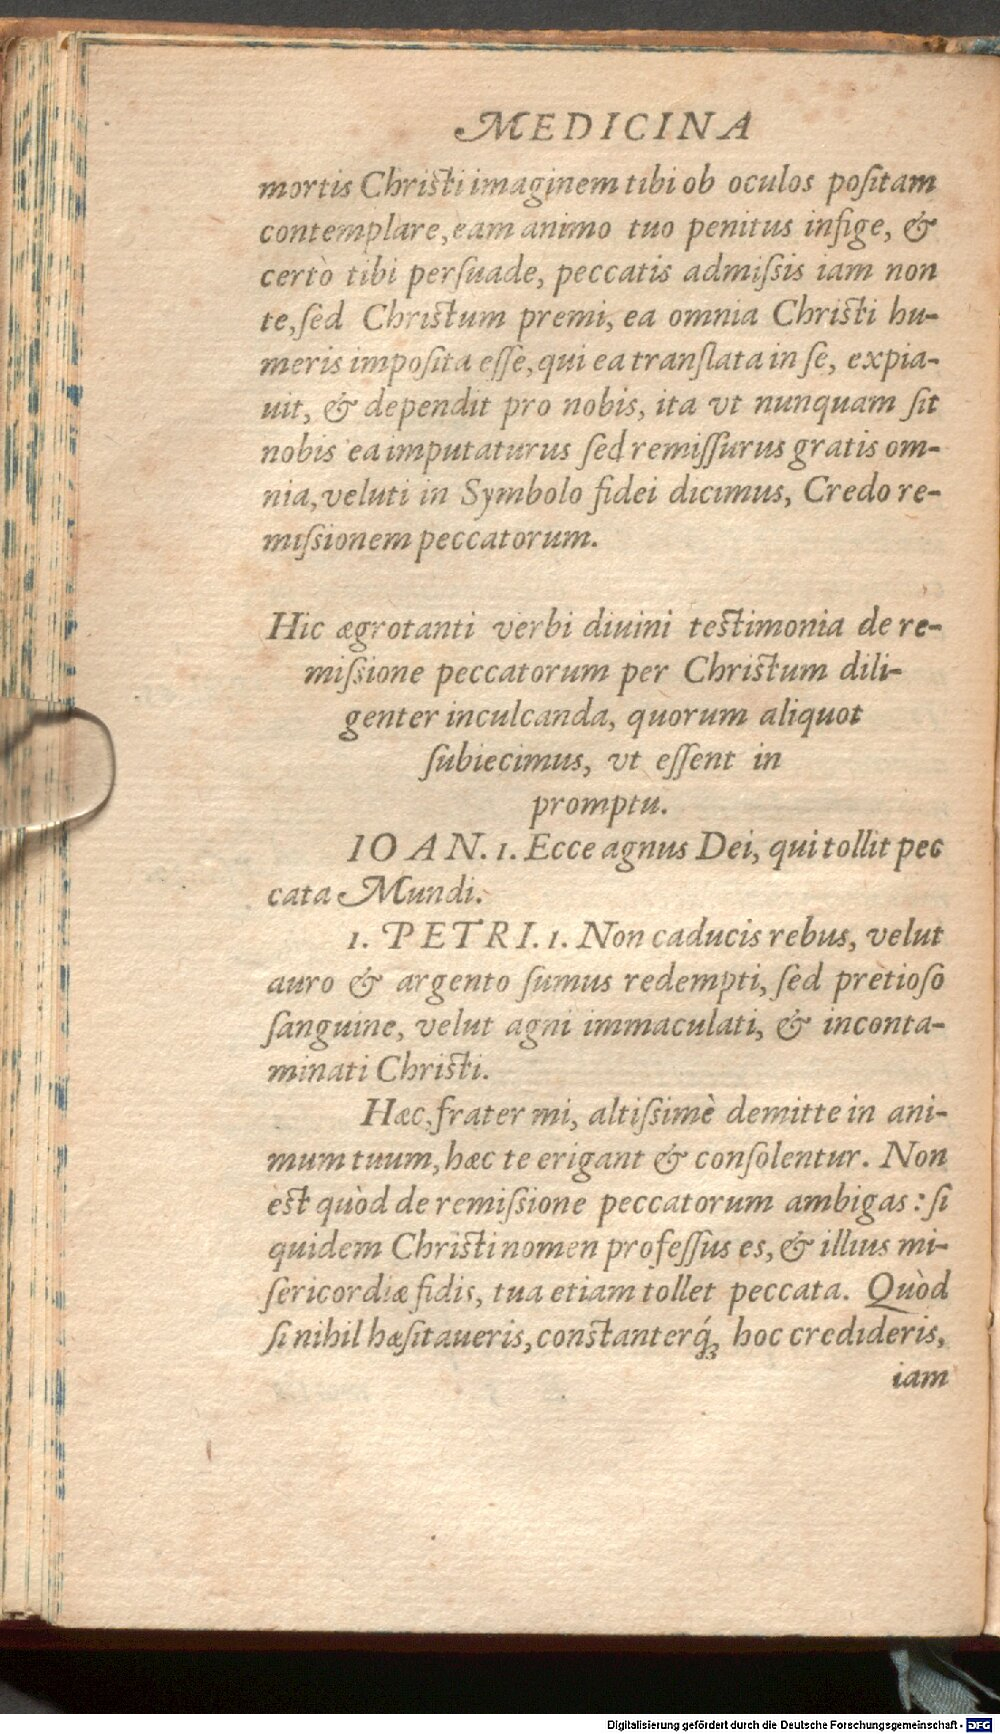 MEDICINA
mortis Chriſti imaginem tibi ob oculos poſitam
contemplare, eam animo tuo penitus infige, &
certò tibi perſuade, peccatis admiſsis iam non
te, ſed Chriſtum premi, ea omnia Chriſti hu-
meris impoſita eſſe, qui ea tranſlata in ſe, expia-
uit, & dependit pro nobis, ita vt nunquam ſit
nobis ea imputaturus ſed remiſſurus gratis om-
nia, veluti in Symbolo fidei dicimus, Credo re-
miſsionem peccatorum.
Hic ægrotanti verbi diuini teſtimonia de re-
miſsione peccatorum per Chriſtum dili-
genter inculcanda, quorum aliquot
ſubiecimus, vt eſſent in
promptu.
IOAN. 1. Ecce agnus Dei, qui tollit pec
cata Mundi.
1. PETRI. 1. Non caducis rebus, velut
auro & argento ſumus redempti, ſed pretioſo
ſanguine, velut agni immaculati, & inconta-
minati Chriſti.
Hæc, frater mi, altiſsimè demitte in ani-
mum tuum, hæc te erigant & conſolentur. Non
eſt quòd de remiſsione peccatorum ambigas: ſi
quidem Chriſti nomen profeſſus es, & illius mi-
ſericordiæ fidis, tua etiam tollet peccata. Quòd
ſi nihil hæſitaueris, conſtanterq́ꝫ hoc credideris,
iam
Digitalisierung gefördert durch die Deutsche Forschungsgemeinschaft - DFG